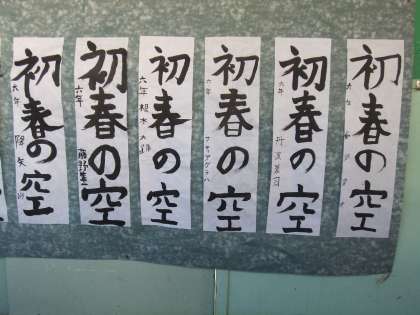 初春の空
六年
初春の空
六年
初春の空
六年
初春の空
六年
初春の空
六年
初春の空